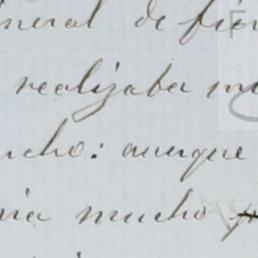 neral de fier
realizaba mu
ucho: aunque
nia mucho